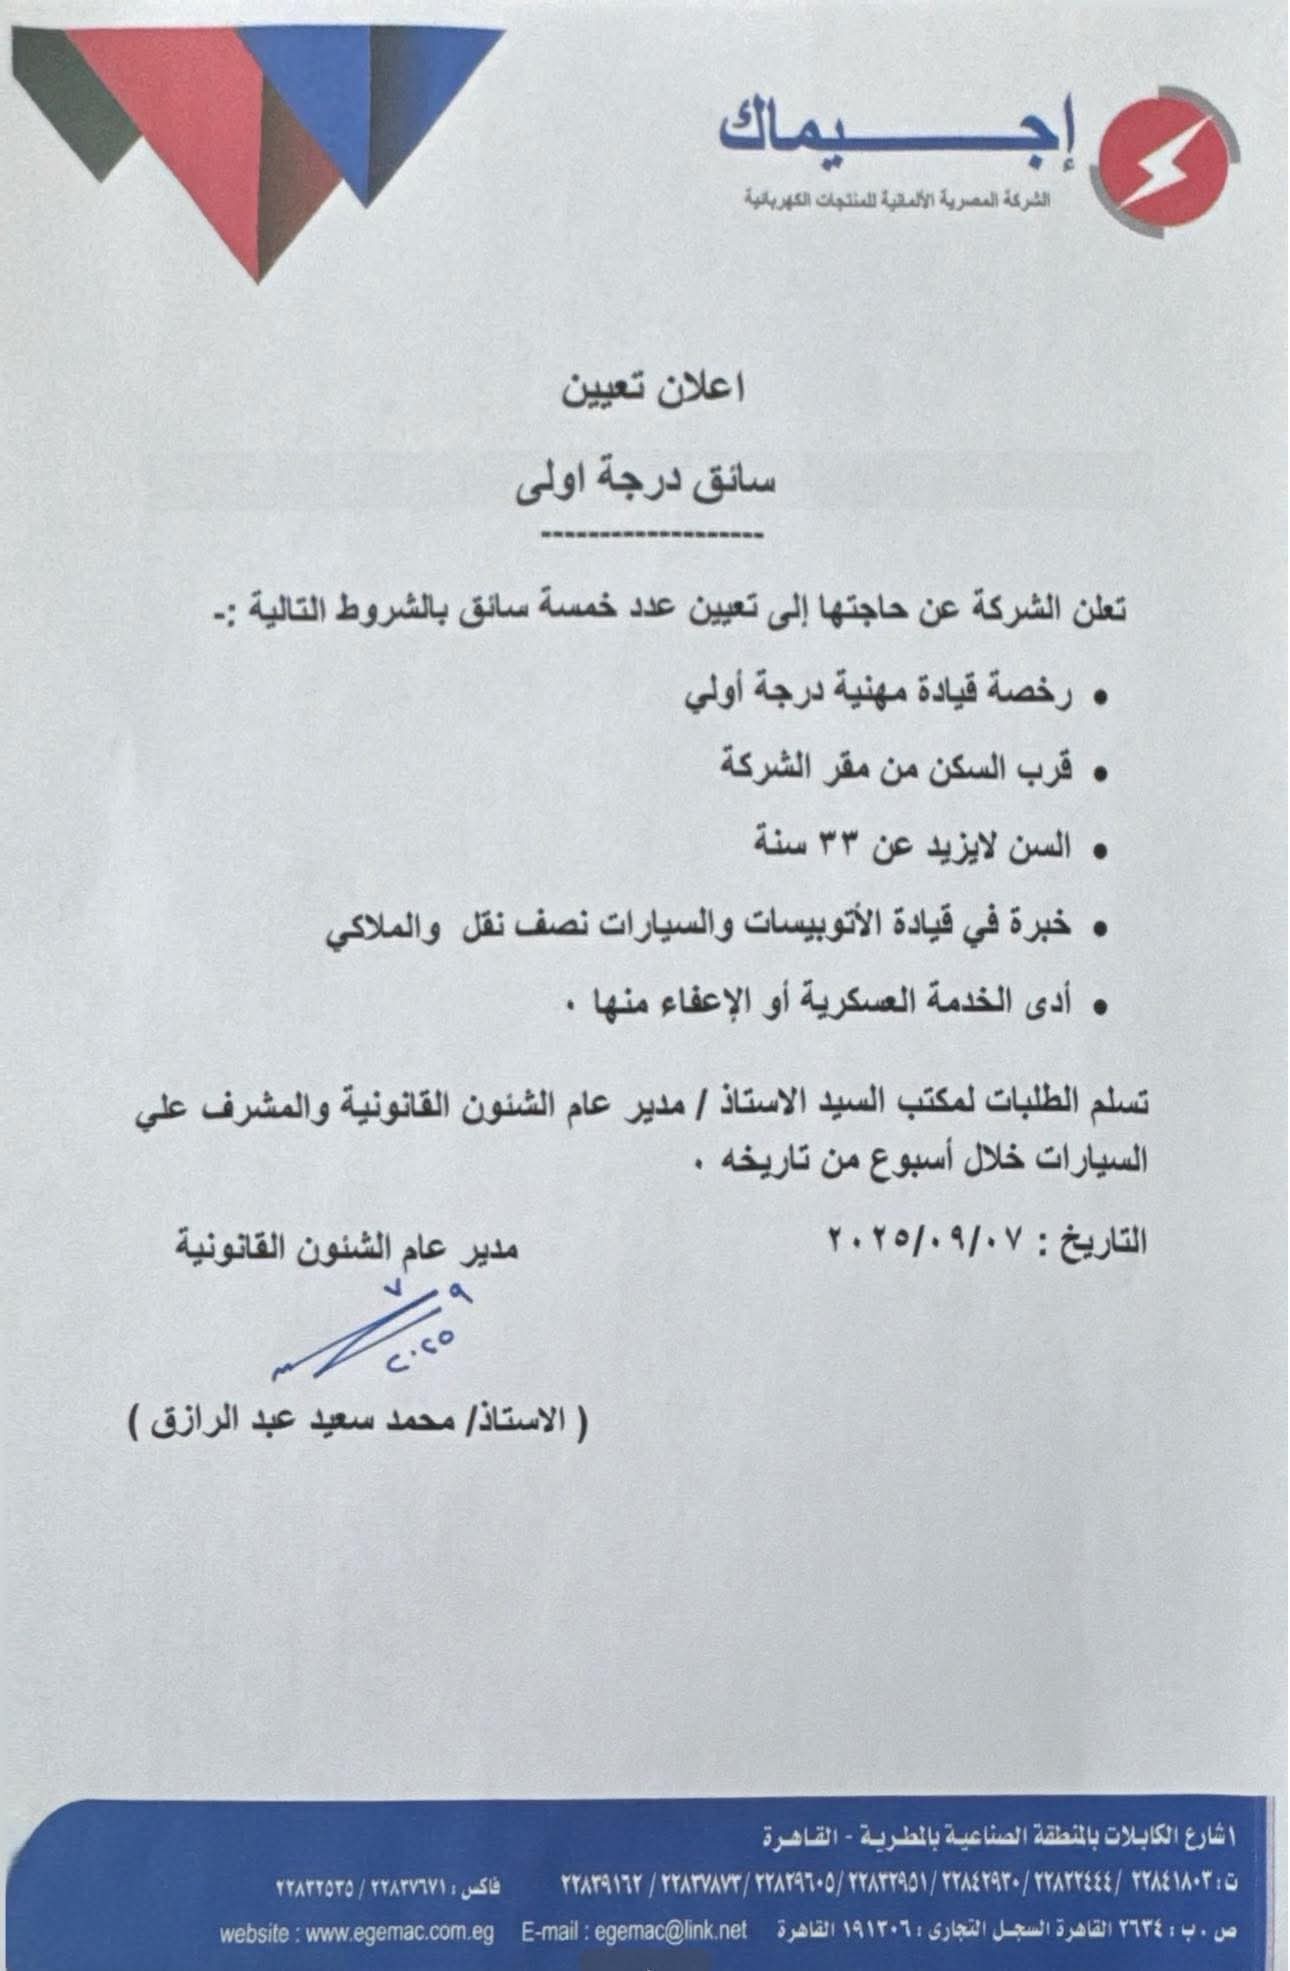 إجيماك
الشركة المصرية الألمانية للمنتجات الكهربائية
اعلان تعيين
سائق درجة اولى
-------------------
تعلن الشركة عن حاجتها إلى تعيين عدد خمسة سائق بالشروط التالية :-
• رخصة قيادة مهنية درجة أولي
• قرب السكن من مقر الشركة
• السن لايزيد عن ٣٣ سنة
• خبرة في قيادة الأتوبيسات والسيارات نصف نقل والملاكي
• أدى الخدمة العسكرية أو الإعفاء منها .
تسلم الطلبات لمكتب السيد الاستاذ / مدير عام الشئون القانونية والمشرف علي
السيارات خلال أسبوع من تاريخه .
التاريخ : ٢٠٢٥/٠٩/٠٧
مدير عام الشئون القانونية
٧ ٩
٢٠٢٥
( الاستاذ/ محمد سعيد عبد الرازق )
١ شارع الكابلات بالمنطقة الصناعية بالمطرية - القاهرة
ت : ٢٢٨٤١٨٠٣ / ٢٢٨٢٢٤٤٤ / ٢٢٨٤٢٩٣٠ / ٢٢٨٣٢٩٥١ / ٢٢٨٢٩٦٠٥ / ٢٢٨٣٧٨٧٣ / ٢٢٨٣٩١٦٢ فاكس : ٢٢٨٣٧٦٧١ / ٢٢٨٣٢٥٣٥
ص . ب : ٢٦٣٤ القاهرة السجل التجارى : ١٩١٣٠٦ القاهرة E-mail : egemac@link.net website : www.egemac.com.eg